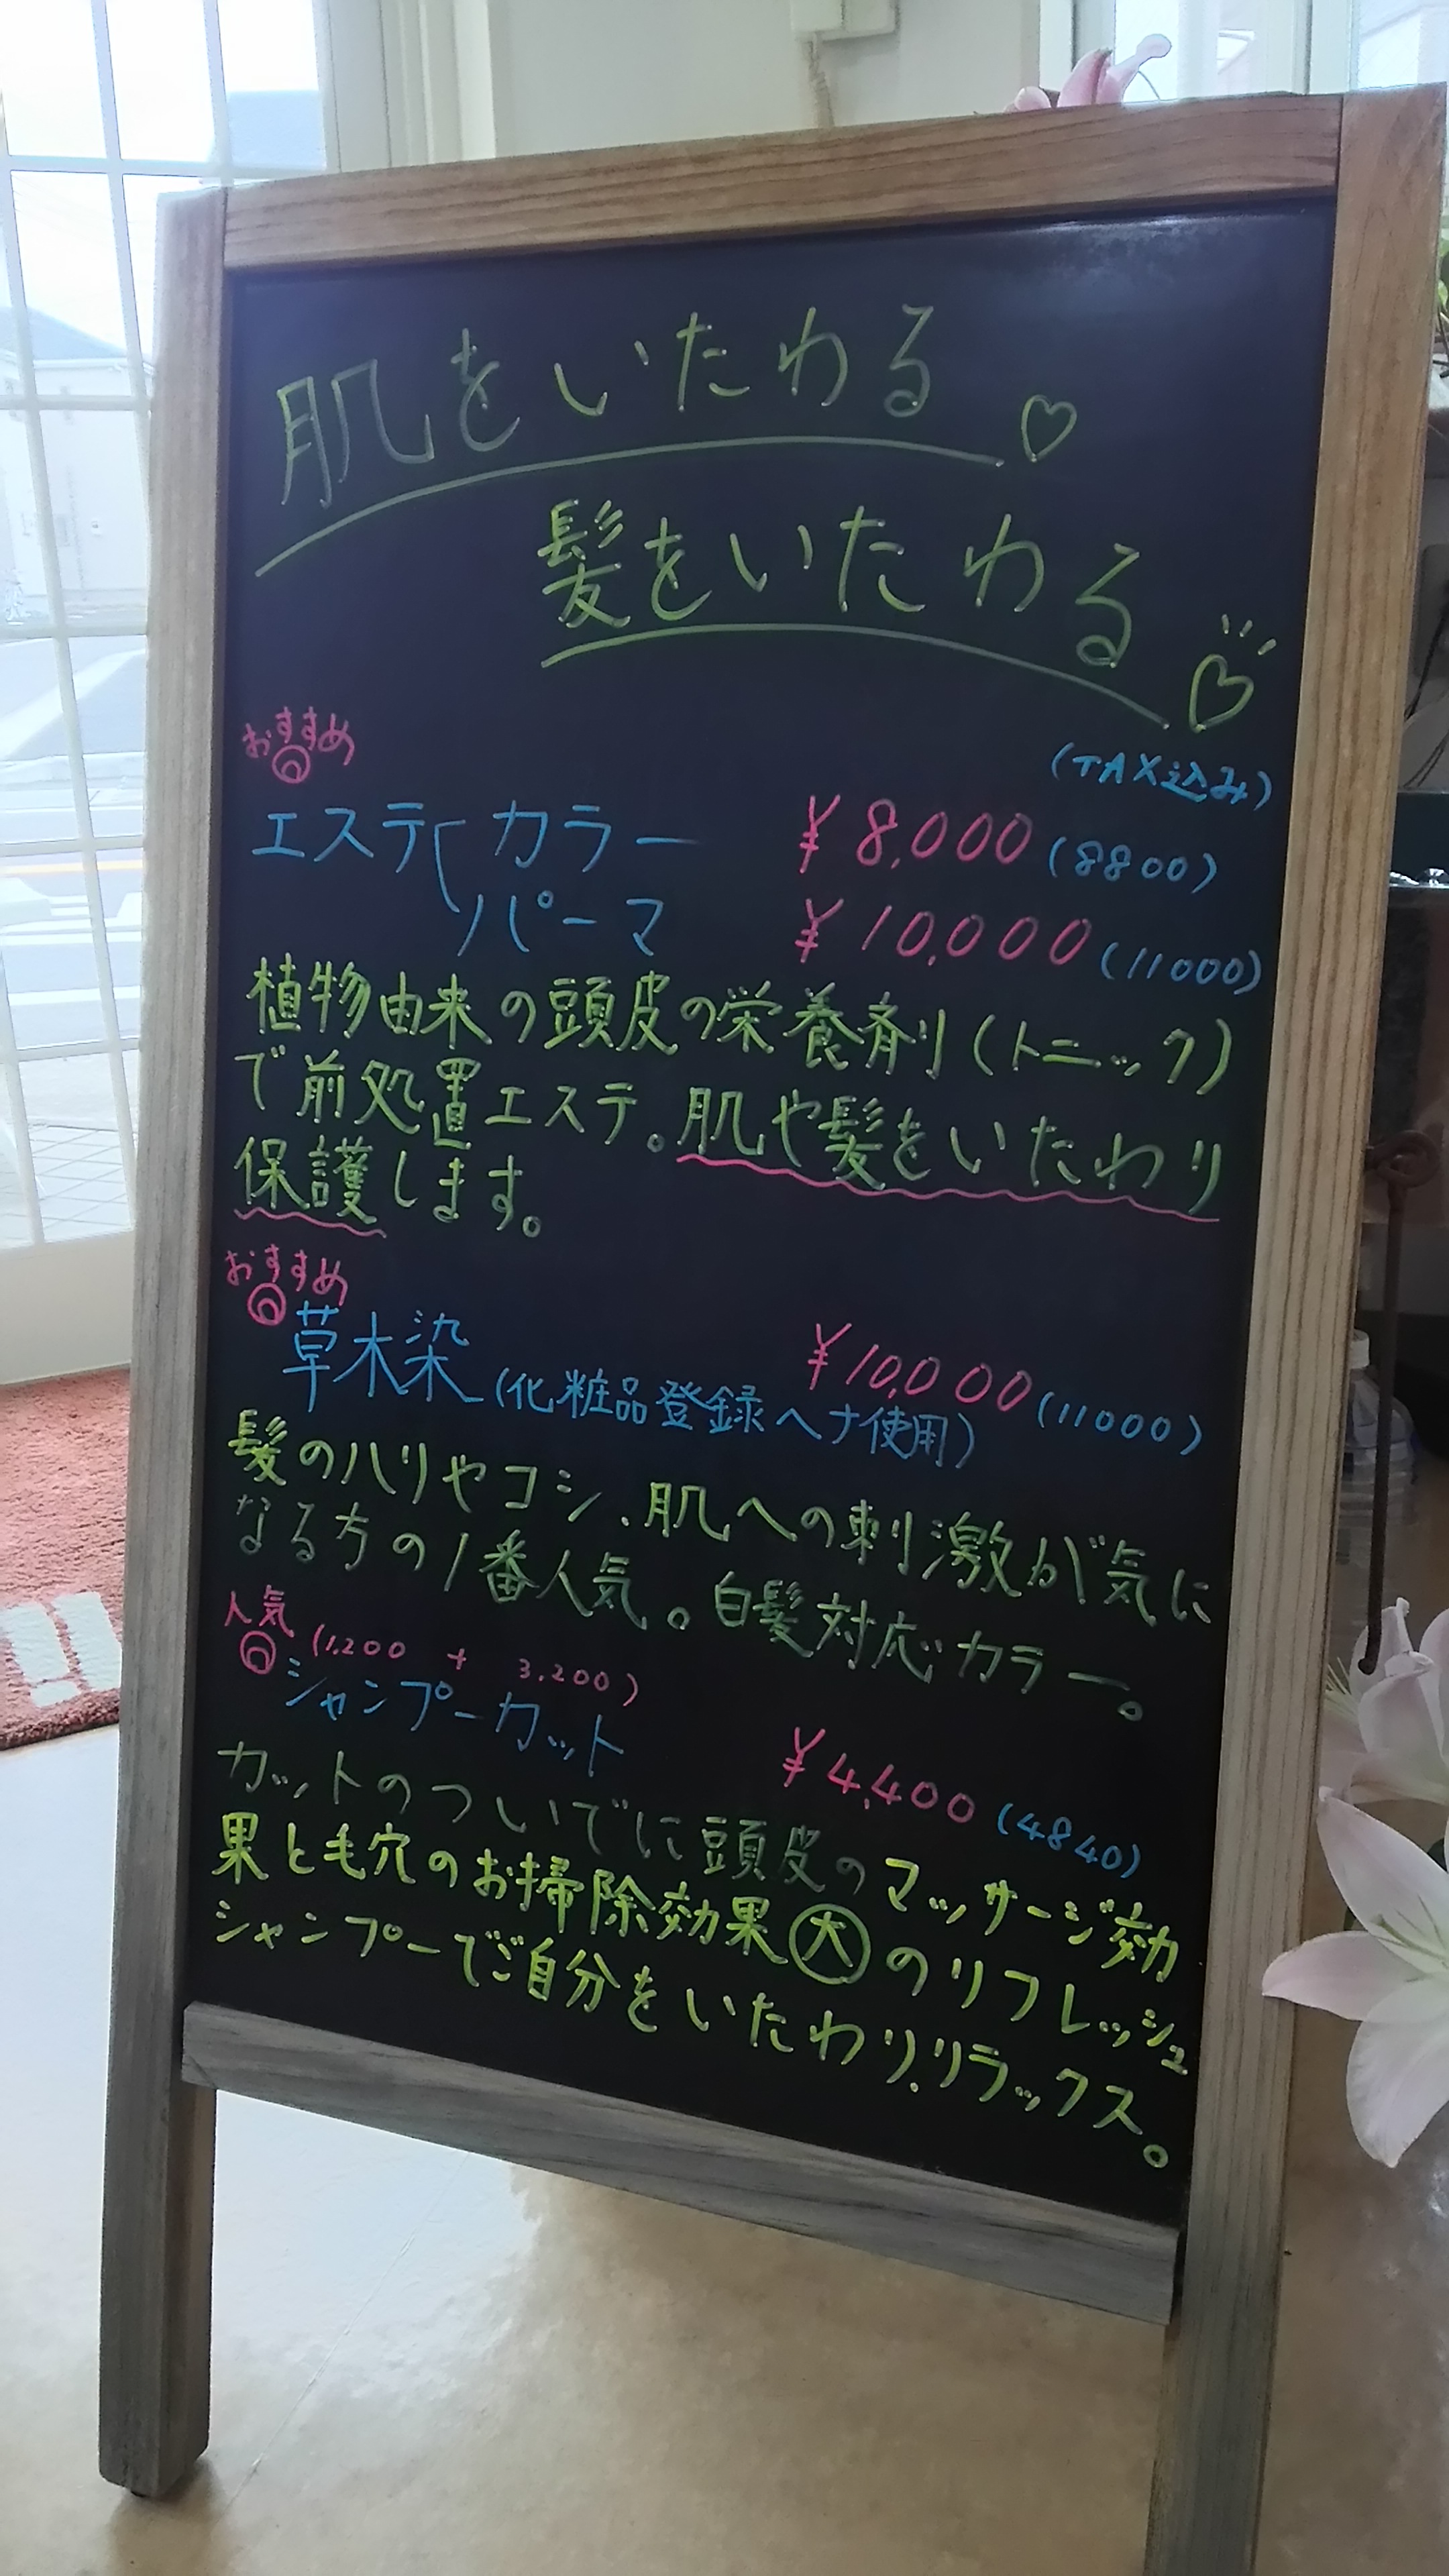 肌をいたわる♡
髪をいたわる♡
おすすめ
(TAX込み)
エステ カラー ¥8,000(8800)
パーマ ¥10,000(11000)
植物由来の頭皮の栄養剤(トニック)
で前処置エステ。肌や髪をいたわり
保護します。
おすすめ
草木染(化粧品登録ヘナ使用) ¥10,000(11000)
髪のハリやコシ、肌への刺激が気に
なる方の1番人気。白髪対応カラー。
人気
(1,200 + 3,200)
シャンプーカット ¥4,400(4840)
カットのついでに頭皮のマッサージ効
果と毛穴のお掃除効果大のリフレッシュ
シャンプーでご自分をいたわり、リラックス。